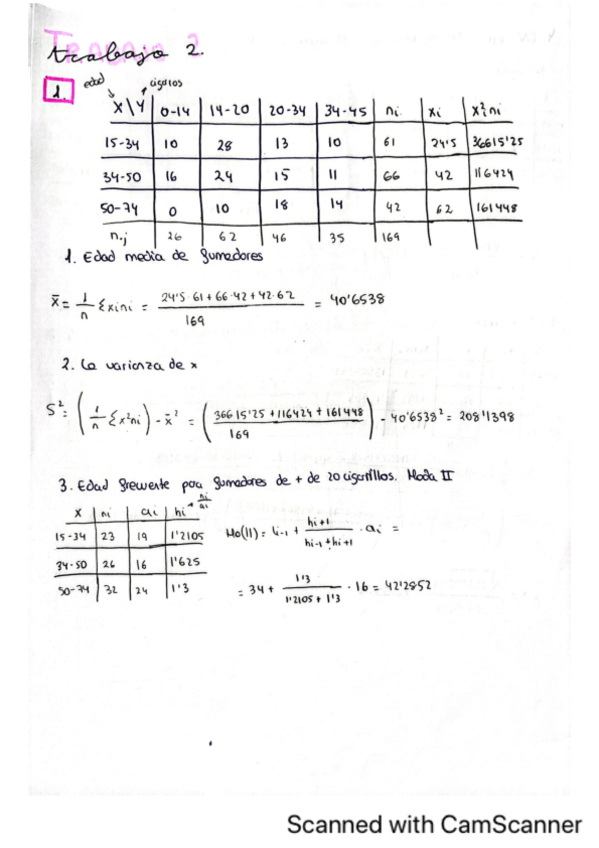 Trabajo 2.
trabajo 2.
1.
edad cigarros
X\Y 0-14 14-20 20-34 34-45 ni. xi xi²ni
15-34 10 28 13 10 61 24'5 36615'25
34-50 16 24 15 11 66 42 116424
50-74 0 10 18 14 42 62 161448
n.j 26 62 46 35 169
1. Edad media de fumadores
x̄ = 1/n Σxini = (24'5·61+66·42+42·62)/169 = 40'6538
2. La varianza de x
S² = (1/n Σx²ni) - x̄² = ((36615'25+116424+161448)/169) - 40'6538² = 208'1398
3. Edad frewente para fumadores de + de 20 cigarrillos. Moda II
x ni ai hi → ni/ai
15-34 23 19 1'2105
34-50 26 16 1'625
50-74 32 24 1'3
Mo(II) = li-1 + hi+1/(hi-1+hi+1) · ai =
= 34 + 1'3/(1'2105+1'3) · 16 = 42'2852
Scanned with CamScanner